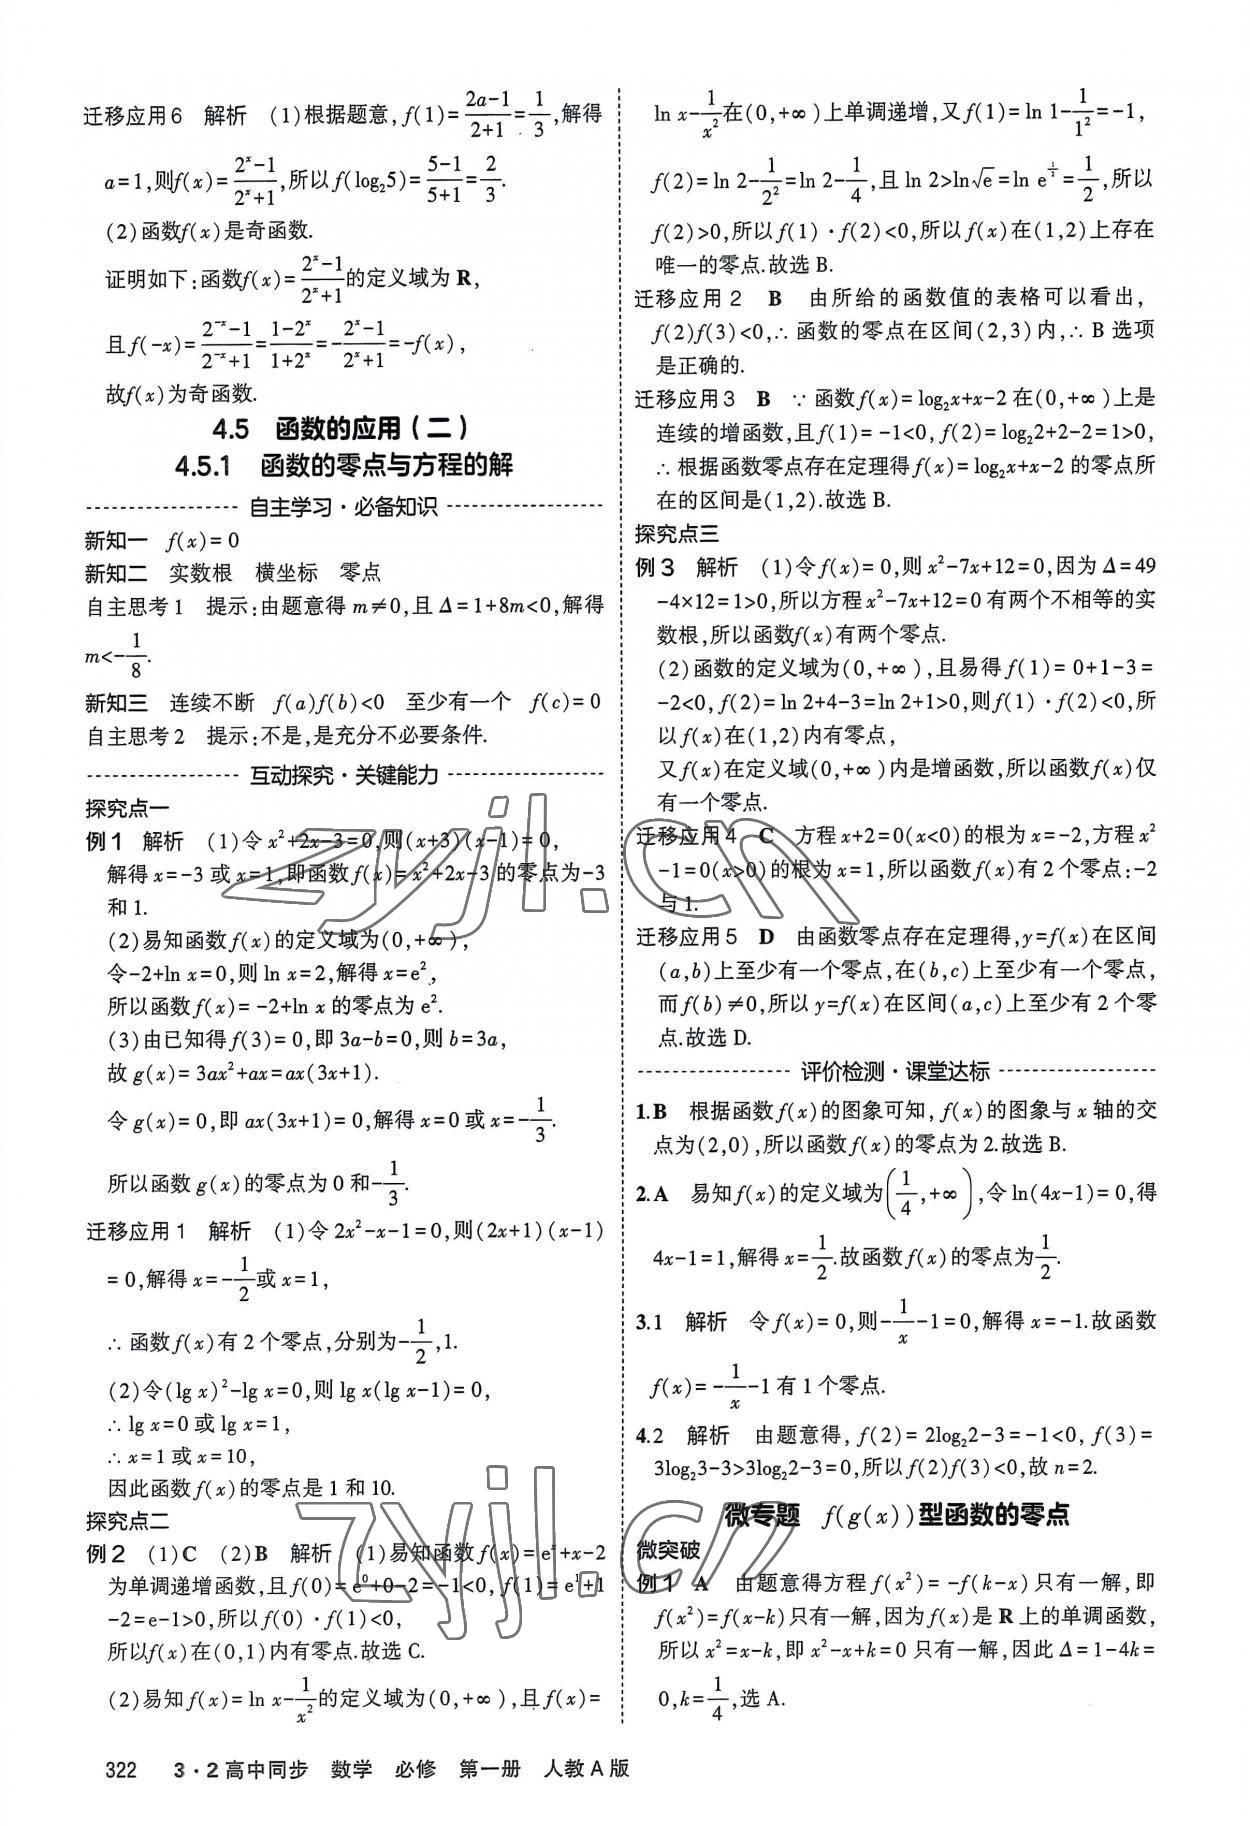 迁移应用6　解析　(1)根据题意,f(1)=\frac{2a-1}{2+1}=\frac{1}{3},解得
a=1,则f(x)=\frac{2^x-1}{2^x+1},所以f(log_2 5)=\frac{5-1}{5+1}=\frac{2}{3}.
(2)函数f(x)是奇函数.
证明如下:函数f(x)=\frac{2^x-1}{2^x+1}的定义域为 R,
且f(-x)=\frac{2^{-x}-1}{2^{-x}+1}=\frac{1-2^x}{1+2^x}=-\frac{2^x-1}{2^x+1}=-f(x),
故f(x)为奇函数.
4.5　函数的应用(二)
4.5.1　函数的零点与方程的解
自主学习·必备知识
新知一　f(x)=0
新知二　实数根　横坐标　零点
自主思考1　提示:由题意得 m≠0,且 Δ=1+8m<0,解得
m<-\frac{1}{8}.
新知三　连续不断　f(a)f(b)<0　至少有一个　f(c)=0
自主思考2　提示:不是,是充分不必要条件.
互动探究·关键能力
探究点一
例1　解析　(1)令 x^2+2x-3=0,则(x+3)(x-1)=0,
解得 x=-3 或 x=1,即函数 f(x)=x^2+2x-3 的零点为-3
和 1.
(2)易知函数 f(x)的定义域为(0,+∞),
令-2+ln x=0,则 ln x=2,解得 x=e^2,
所以函数 f(x)=-2+ln x 的零点为 e^2.
(3)由已知得 f(3)=0,即 3a-b=0,则 b=3a,
故 g(x)=3ax^2+ax=ax(3x+1).
令 g(x)=0,即 ax(3x+1)=0,解得 x=0 或 x=-\frac{1}{3}.
所以函数 g(x)的零点为 0 和-\frac{1}{3}.
迁移应用1　解析　(1)令 2x^2-x-1=0,则(2x+1)(x-1)
=0,解得 x=-\frac{1}{2}或 x=1,
∴函数 f(x)有 2 个零点,分别为-\frac{1}{2},1.
(2)令(lg x)^2-lg x=0,则 lg x(lg x-1)=0,
∴lg x=0 或 lg x=1,
∴x=1 或 x=10,
因此函数 f(x)的零点是 1 和 10.
探究点二
例2　(1)C　(2)B　解析　(1)易知函数 f(x)=e^x+x-2
为单调递增函数,且 f(0)=e^0+0-2=-1<0,f(1)=e^1+1
-2=e-1>0,所以 f(0)·f(1)<0,
所以f(x)在(0,1)内有零点.故选 C.
(2)易知 f(x)=ln x-\frac{1}{x^2}的定义域为(0,+∞),且 f(x)=
ln x-\frac{1}{x^2}在(0,+∞)上单调递增,又 f(1)=ln 1-\frac{1}{1^2}=-1,
f(2)=ln 2-\frac{1}{2^2}=ln 2-\frac{1}{4},且 ln 2>ln√e=ln e^{\frac{1}{2}}=\frac{1}{2},所以
f(2)>0,所以 f(1)·f(2)<0,所以 f(x)在(1,2)上存在
唯一的零点.故选 B.
迁移应用2　B　由所给的函数值的表格可以看出,
f(2)f(3)<0,∴函数的零点在区间(2,3)内,∴B 选项
是正确的.
迁移应用3　B　∵函数 f(x)=log_2 x+x-2 在(0,+∞)上是
连续的增函数,且 f(1)=-1<0,f(2)=log_2 2+2-2=1>0,
∴根据函数零点存在定理得 f(x)=log_2 x+x-2 的零点所
在的区间是(1,2).故选 B.
探究点三
例3　解析　(1)令 f(x)=0,则 x^2-7x+12=0,因为 Δ=49
-4×12=1>0,所以方程 x^2-7x+12=0 有两个不相等的实
数根,所以函数f(x)有两个零点.
(2)函数的定义域为(0,+∞),且易得 f(1)=0+1-3=
-2<0,f(2)=ln 2+4-3=ln 2+1>0,则f(1)·f(2)<0,所
以 f(x)在(1,2)内有零点,
又 f(x)在定义域(0,+∞)内是增函数,所以函数 f(x)仅
有一个零点.
迁移应用4　C　方程 x+2=0(x<0)的根为 x=-2,方程 x^2
-1=0(x>0)的根为 x=1,所以函数 f(x)有 2 个零点:-2
与 1.
迁移应用5　D　由函数零点存在定理得,y=f(x)在区间
(a,b)上至少有一个零点,在(b,c)上至少有一个零点,
而 f(b)≠0,所以 y=f(x)在区间(a,c)上至少有 2 个零
点.故选 D.
评价检测·课堂达标
1.B　根据函数 f(x)的图象可知,f(x)的图象与 x 轴的交
点为(2,0),所以函数 f(x)的零点为 2.故选 B.
2.A　易知 f(x)的定义域为(\frac{1}{4},+∞),令 ln(4x-1)=0,得
4x-1=1,解得 x=\frac{1}{2}.故函数 f(x)的零点为\frac{1}{2}.
3.1　解析　令 f(x)=0,则-\frac{1}{x}-1=0,解得 x=-1.故函数
f(x)=-\frac{1}{x}-1 有 1 个零点.
4.2　解析　由题意得,f(2)=2log_2 2-3=-1<0,f(3)=
3log_2 3-3>3log_2 2-3=0,所以 f(2)f(3)<0,故 n=2.
微专题　f(g(x))型函数的零点
微突破
例1　A　由题意得方程 f(x^2)=-f(k-x)只有一解,即
f(x^2)=f(x-k)只有一解,因为 f(x)是 R 上的单调函数,
所以 x^2=x-k,即 x^2-x+k=0 只有一解,因此 Δ=1-4k=
0,k=\frac{1}{4},选 A.
322　3·2高中同步　数学　必修　第一册　人教A版
zyjl.cn
zyjl.cn